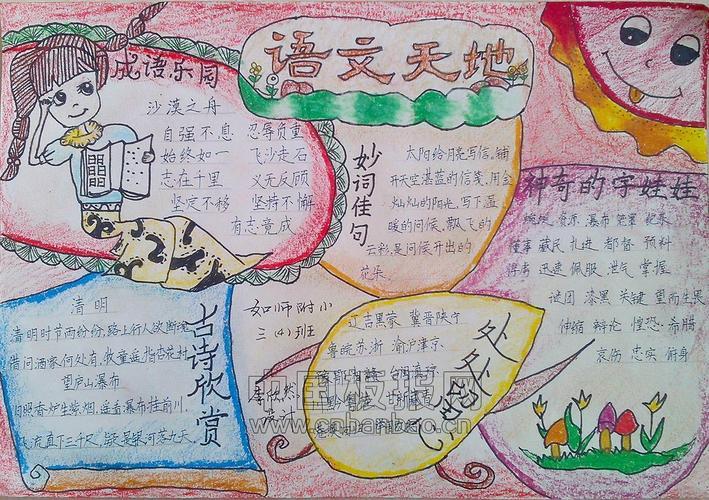 语文天地
成语乐园
沙漠之舟
自强不息 忍辱负重
始终如一 飞沙走石
志在千里 义无反顾
坚定不移 坚持不懈
有志竟成
妙词佳句
太阳给月亮写信。铺
开天空湛蓝的信笺,用金
灿灿的阳光,写下温
暖的问候。飘飞的
云彩,是问候开出的
花朵
神奇的字娃娃
瀑布 笼罩
董事 藏民 扎进 都督 预料
得者 迅速 佩服 泄气 掌握
谜团 漆黑 关键 望而生畏
伸缩 辩论 惶恐 希腊
哀伤 忠实 俯身
古诗欣赏
清明
清明时节雨纷纷,路上行人欲断魂
借问酒家何处有,牧童遥指杏花村
望庐山瀑布
日照香炉生紫烟,遥看瀑布挂前川。
飞流直下三千尺,疑是银河落九天。
如师附小
三(4)班
李欣然
辽吉黑蒙 冀晋陕宁
粤皖苏浙 渝沪津京
处处
中国板报网
www.cnbanbao.cn